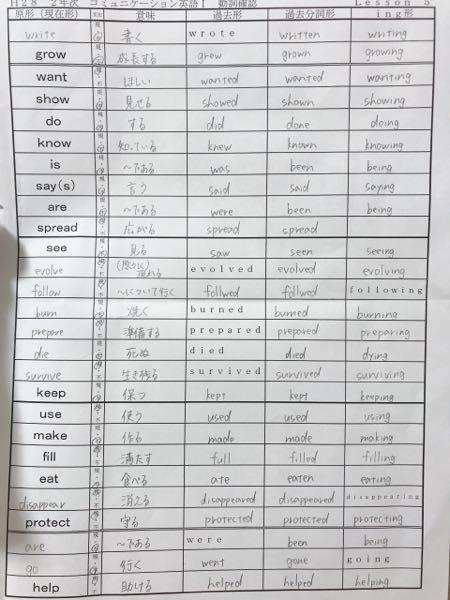 H28 2年次 コミュニケーション英語Ⅰ 動詞確認 Lesson 5
原形(現在形) 意味 過去形 過去分詞形 ing形
write 書く wrote written writing
grow 成長する grew grown growing
want ほしい wanted wanted wanting
show 見せる showed shown showing
do する did done doing
know 知っている knew known knowing
is ~である was been being
say(s) 言う said said saying
are ~である were been being
spread 広がる spread spread
see 見る saw seen seeing
evolve evolved evolved evolving
follow ~について行く follwed follwed following
burn 焼く burned burned burning
prepare 準備する prepared prepared preparing
die 死ぬ died died dying
survive 生き残る survived survived surviving
keep 保つ kept kept keeping
use 使う used used using
make 作る made made making
fill 満たす full filled filling
eat 食べる ate eaten eating
disappear 消える disappeared disappeared disappearing
protect 守る protected protected protecting
are ~である were been being
go 行く went gone going
help 助ける helped helped helping